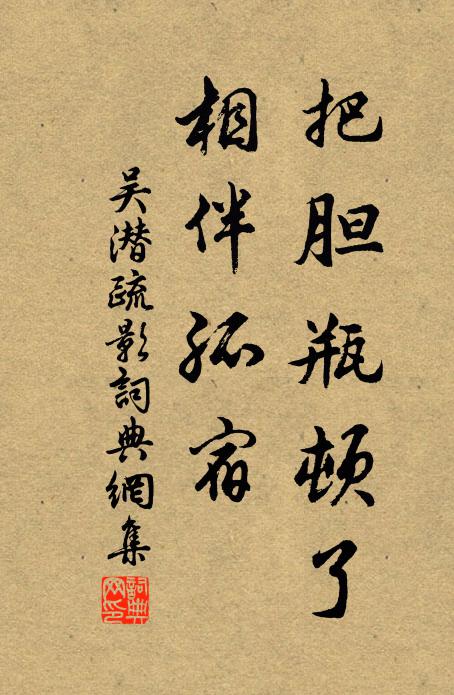 把胆瓶顿了
相伴孤宿
吴潜疏影詞典網集
詞典网印